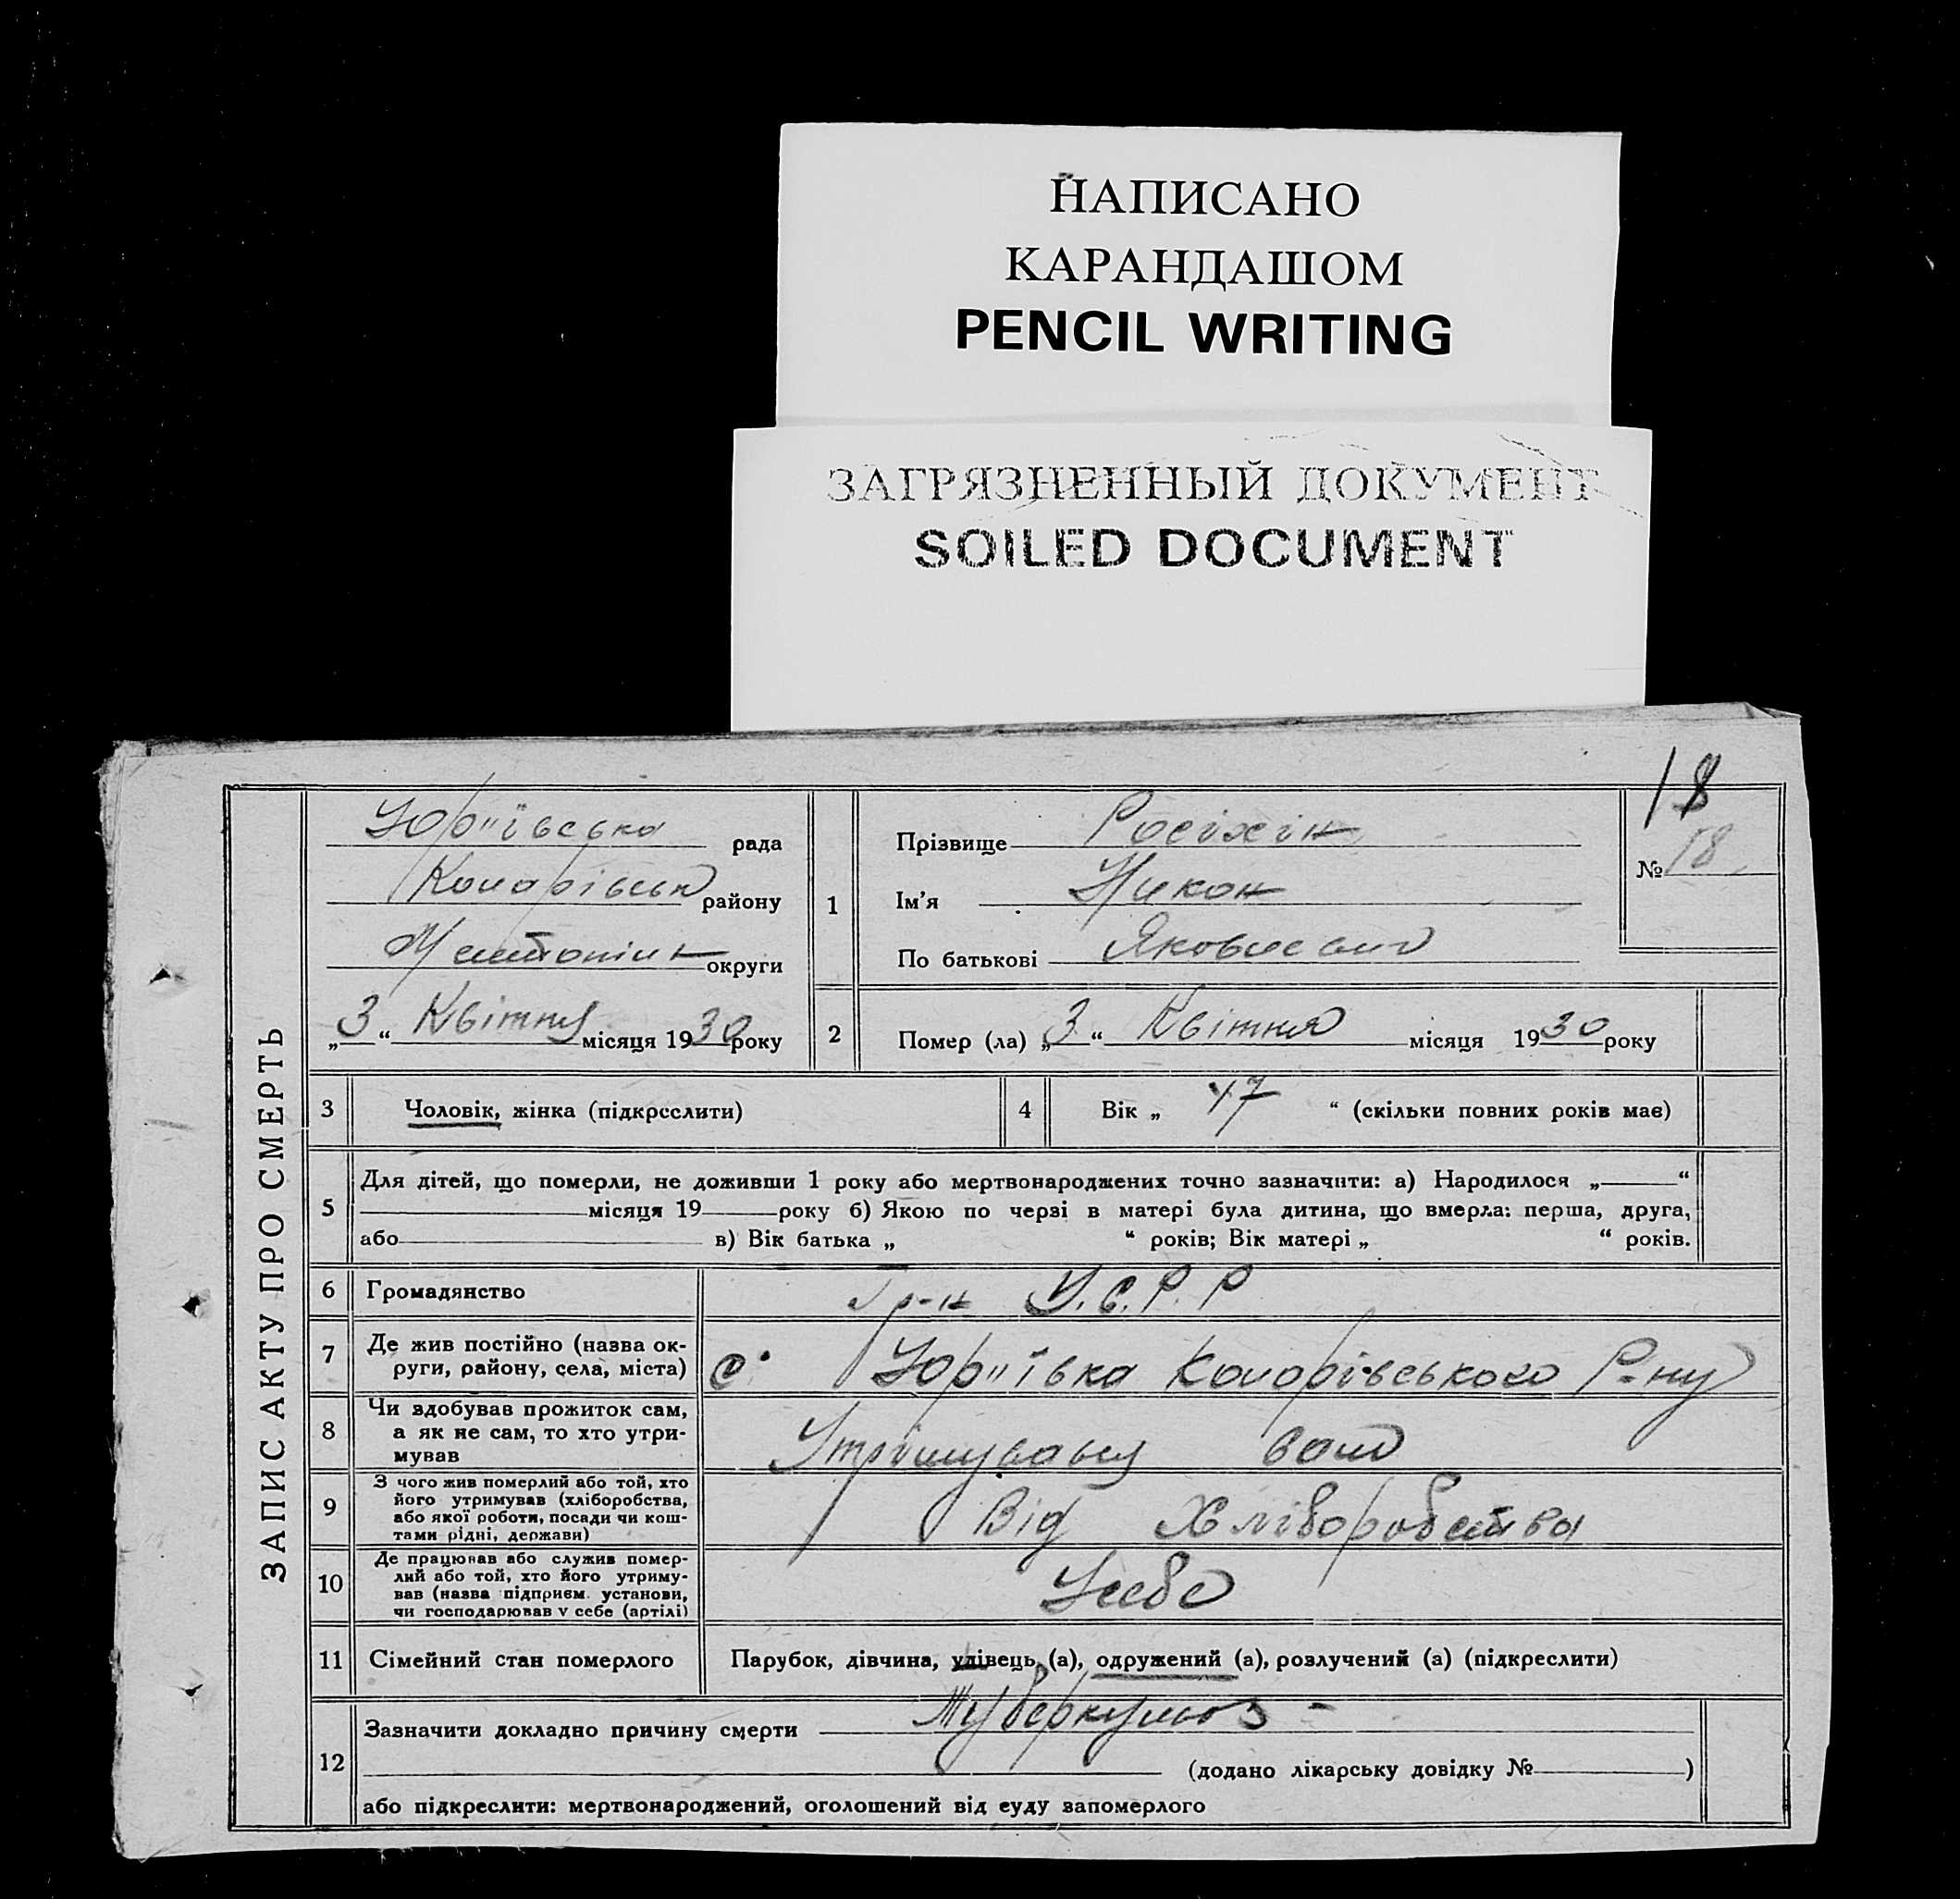 НАПИСАНО
КАРАНДАШОМ
PENCIL WRITING
ЗАГРЯЗНЕННЫЙ ДОКУМЕНТ
SOILED DOCUMENT
18
ЗАПИС АКТУ ПРО СМЕРТЬ
Юр'ївська рада
району
округи
„3“ Квітня місяця 1930 року
1
Прізвище Росіхін
Ім'я Никон
По батькові Якович
№ 18
2
Помер (ла) „3“ Квітня місяця 1930 року
3 Чоловік, жінка (підкреслити)
4 Вік „47“ (скільки повних років має)
5 Для дітей, що померли, не доживши 1 року або мертвонароджених точно зазначити: а) Народилося „ “
місяця 19 року б) Якою по черзі в матері була дитина, що вмерла: перша, друга,
або в) Вік батька „ “ років; Вік матері „ “ років.
6 Громадянство Гр-н У.С.Р.Р
7 Де жив постійно (назва ок-
руги, району, села, міста) с. Юр'ївка Р-ну
8 Чи здобував прожиток сам,
а як не сам, то хто утри-
мував
сам
9 З чого жив померлий або той, хто
його утримував (хліборобства,
або якої роботи, посади чи кош-
тами рідні, держави)
Від Хліборобства
10 Де працював або служив помер-
лий або той, хто його утриму-
вав (назва підприєм. установи,
чи господарював у себе (артілі)
У себе
11 Сімейний стан померлого Парубок, дівчина, удівець (а), одружений (а), розлучений (а) (підкреслити)
12 Зазначити докладно причину смерти Туберкульоз -
(додано лікарську довідку № )
або підкреслити: мертвонароджений, оголошений від суду запомерлого